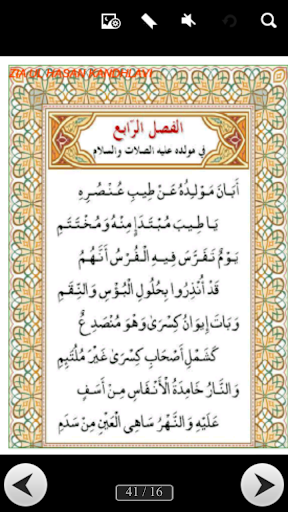 ZIA UL HASAN KANDHLAVI
الفصل الرّابع
في مولده عليه الصلات والسلام
أَبَانَ مَوْلِدُهُ عَنْ طِيبِ عُنْصُرِهِ
يَا طِيبَ مُبْتَدَإٍ مِنْهُ وَمُخْتَتَمِ
يَوْمٌ تَفَرَّسَ فِيهِ الْفُرْسُ أَنَّهُمُ
قَدْ أُنْذِرُوا بِحُلُولِ الْبُؤْسِ وَالنِّقَمِ
وَبَاتَ إِيوَانُ كِسْرَى وَهُوَ مُنْصَدِعٌ
كَشَمْلِ أَصْحَابِ كِسْرَى غَيْرَ مُلْتَئِمِ
وَالنَّارُ خَامِدَةُ الْأَنْفَاسِ مِنْ أَسَفٍ
عَلَيْهِ وَالنَّهْرُ سَاهِي الْعَيْنِ مِنْ سَدَمِ
41 / 16